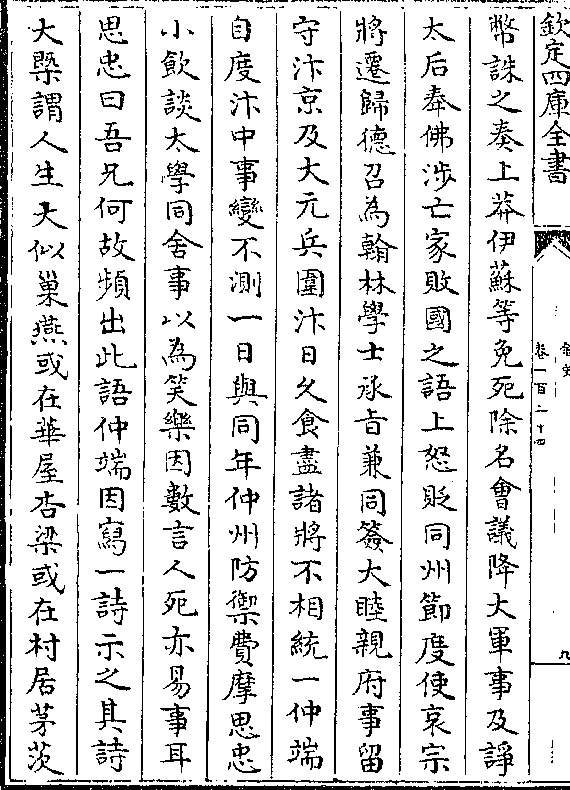 欽定四庫全書
金史
卷一百二十四
九
幣誅之奏上莽伊蘇等免死除名㑹議降大軍事及諍
太后奉佛涉亡家敗國之語上怒貶同州節度使哀宗
將遷歸德召為翰林學士承旨兼同簽大睦親府事留
守汴京及大元兵圍汴日乆食盡諸將不相統一仲端
自度汴中事變不測一日與同年仲州防禦費摩思忠
小飲談太學同舍事以為笑樂因數言人死亦易事耳
思忠曰吾兄何故頻出此語仲端因寫一詩示之其詩
大槩謂人生大似巢燕或在華屋杏梁或在村居茅茨